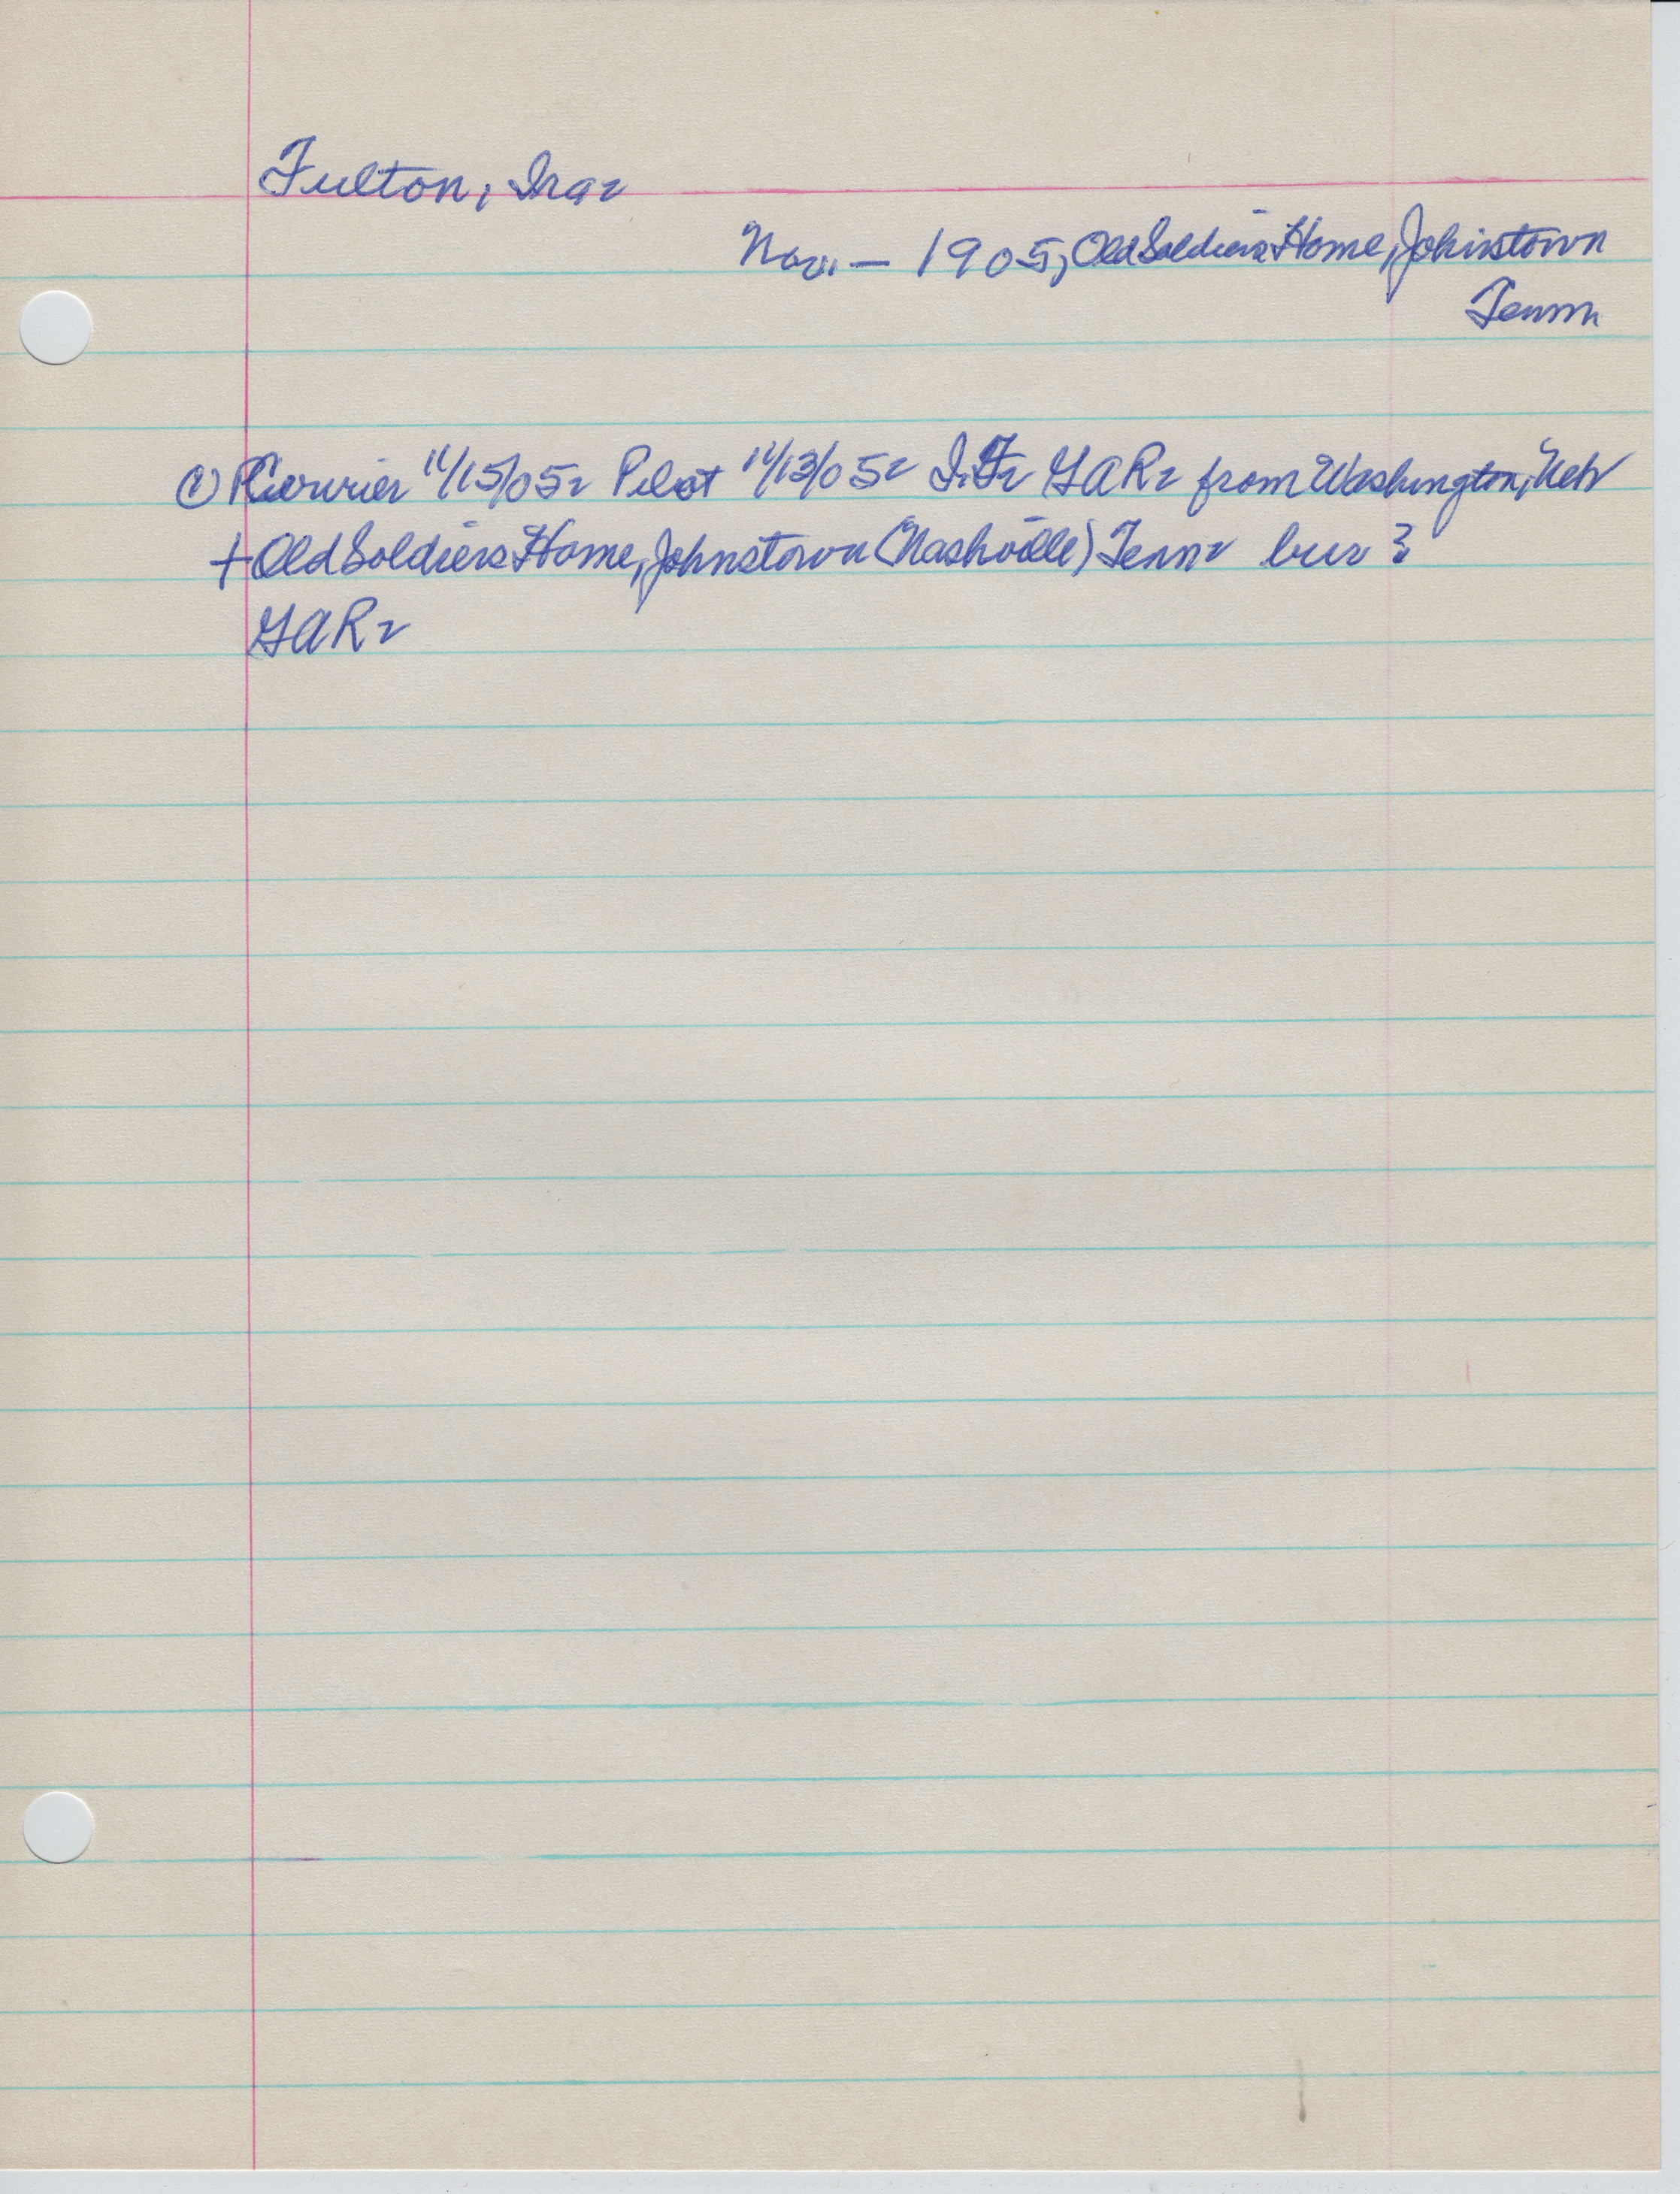 Fulton, Ira
Nov. — 1905, Old Soldiers Home, Johnstown
Tenn
(c) Courier 11/15/05 Pilot 11/13/05 I.F. GAR from Washington, Neb
+ Old Soldiers Home, Johnstown (Nashville) Tenn bur ?
GAR